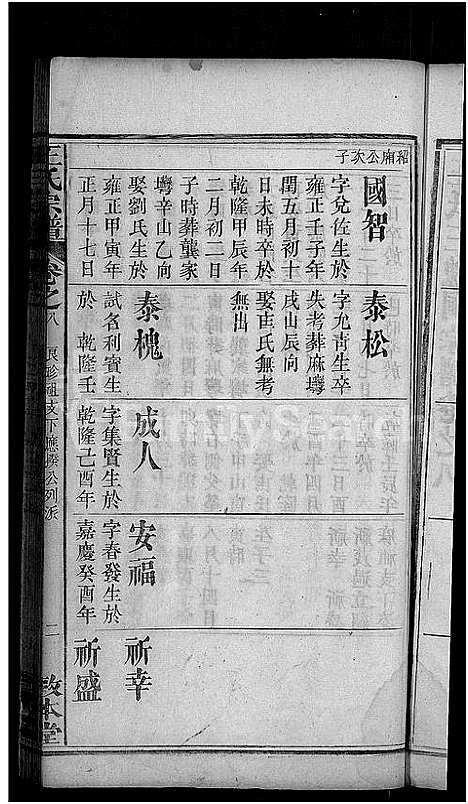 紹廟公次子
國智
字兌佐生於
雍正壬子年
閏五月初十
日未時卒於
乾隆甲辰年
二月初二日
子時葬龔家
塆辛山乙向
娶劉氏生於
雍正甲寅年
正月十七日
泰松
字允青生卒
失考葬麻塆
戌山辰向
娶由氏無考
無出
泰槐
試名利賓生
於 乾隆壬
成人
字集賢生於
乾隆己酉年
安福
字春發生於
嘉慶癸酉年
祈幸
祈盛
王氏宗譜
卷之八
派
二
敦本堂